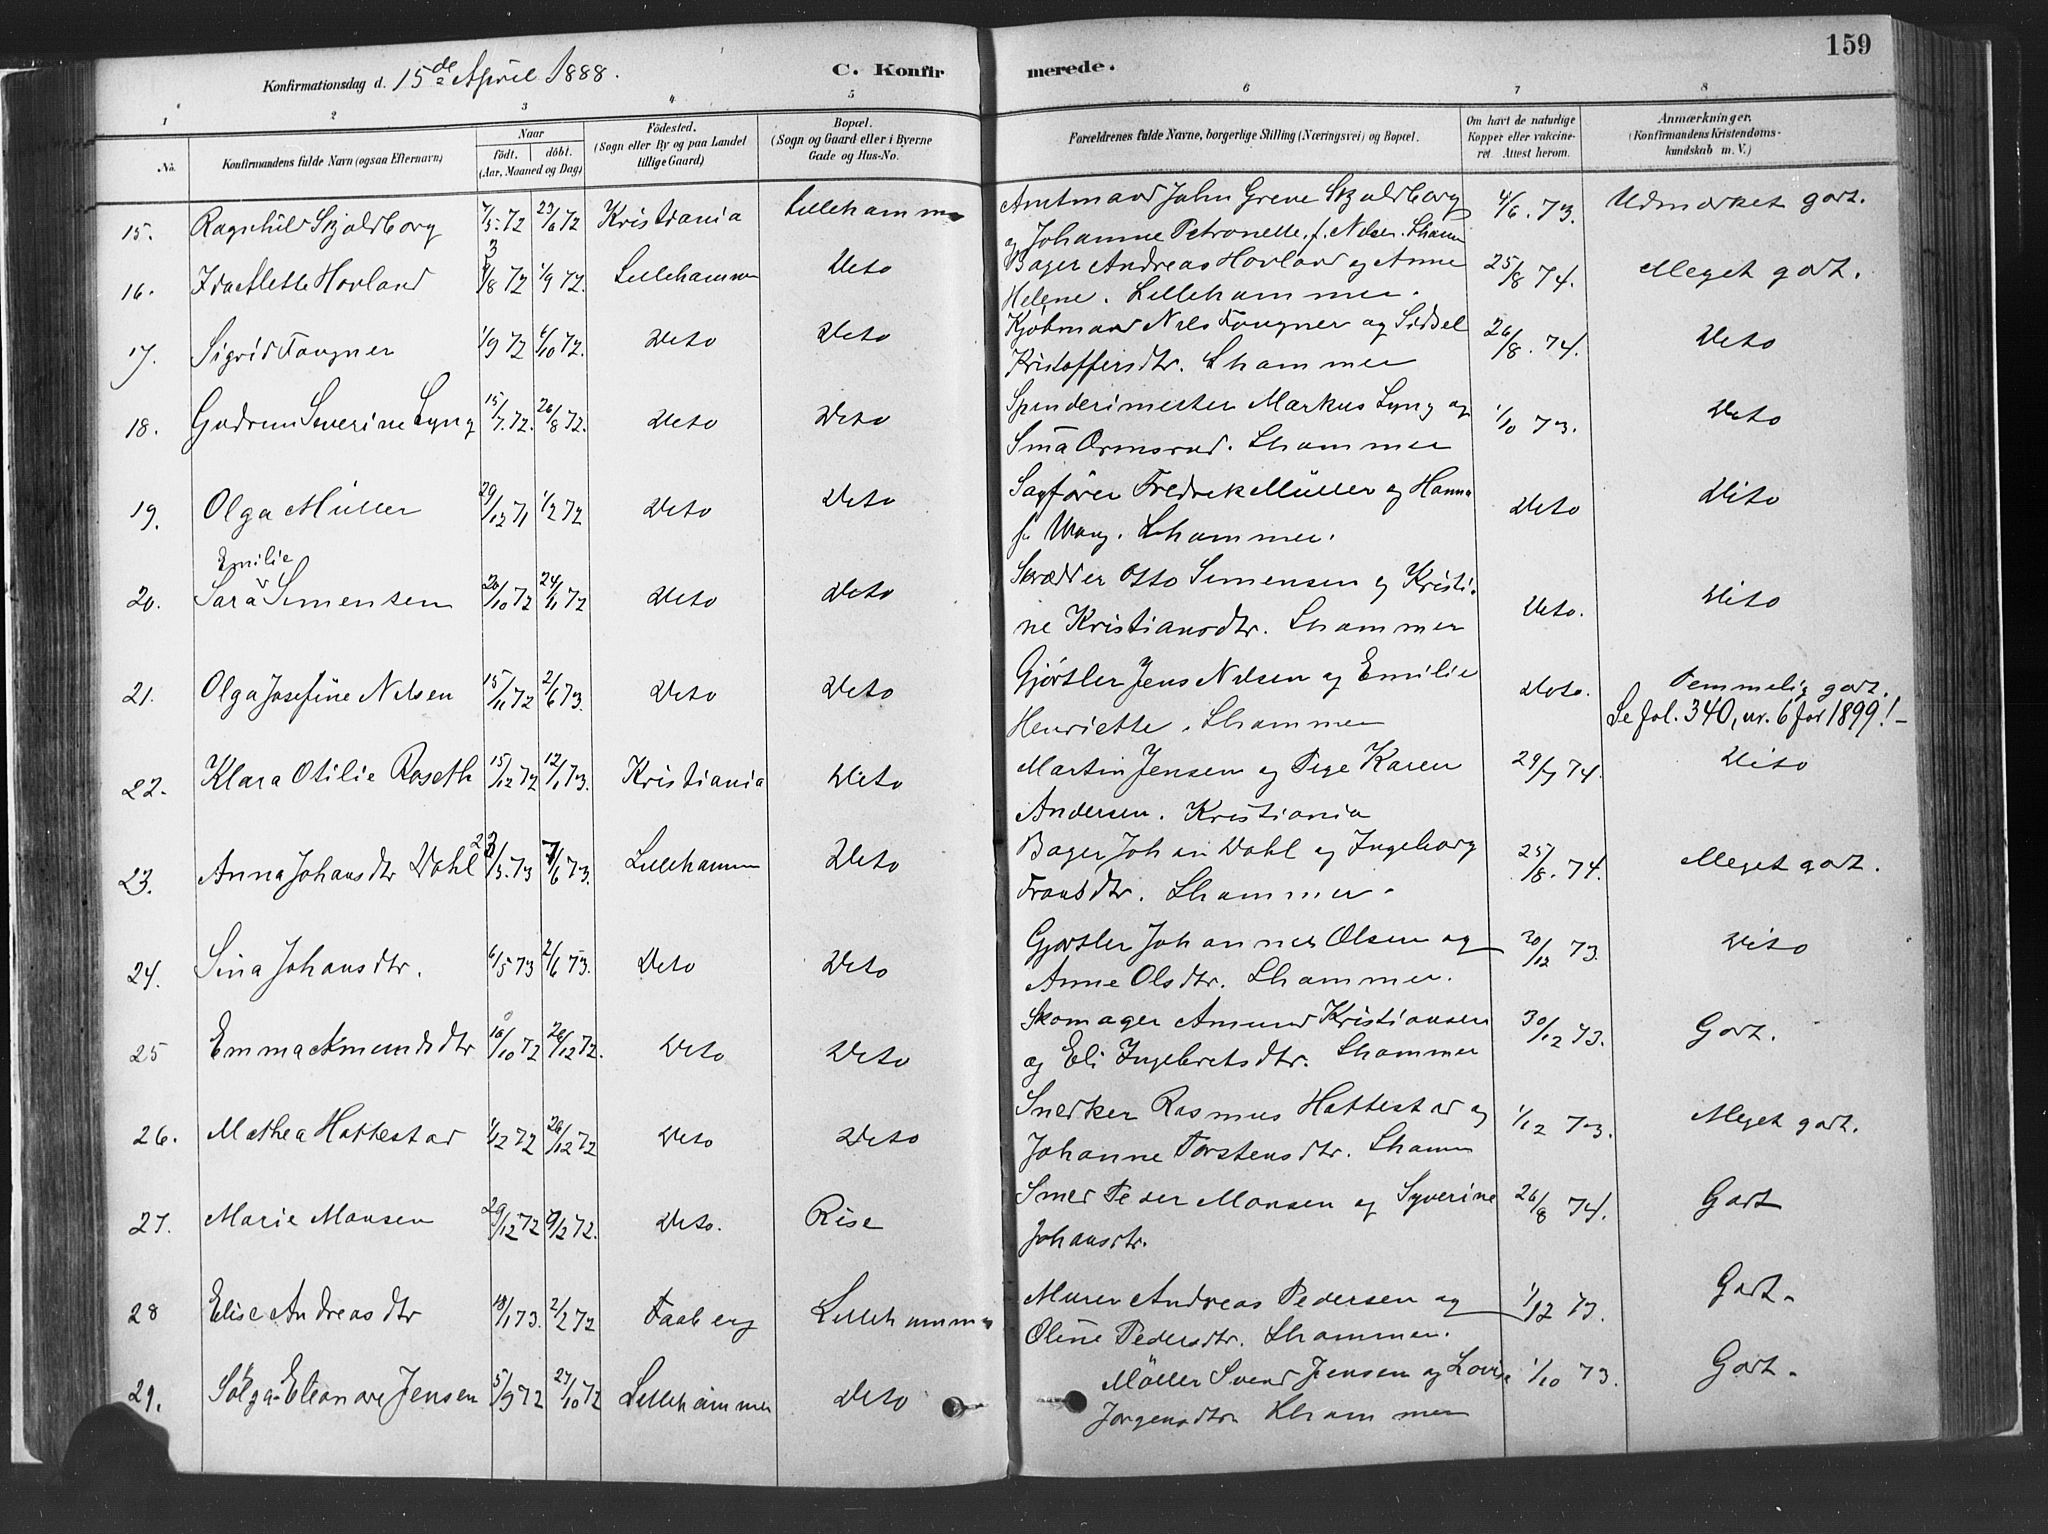 159
Konfirmationsdag d. 15de April 1888.
C. Konfir
merede.
1 2 3 4 5 6 7 8
No.
Konfirmandens fulde Navn (ogsaa Efternavn)
Naar
födt. döbt.
(Aar, Maaned og Dag)
Födested.
(Sogn eller By og paa Landet
tillige Gaard)
Bopæl.
(Sogn og Gaard eller i Byerne
Gade og Hus-No.
Forældrenes fulde Navne, borgerlige Stilling (Næringsvei) og Bopæl.
Om havt de naturlige
Kopper eller vakcine-
ret Attest herom.
Anmærkninger.
(Konfirmandens Kristendoms-
kundskab m. V.)
15. Ragnhild Skjoldborg 7/5.72 23/6 72 Kristiania Lillehammer Amtmand John Greve Skjoldborg 4/6. 73. Udmærket godt.
og Johanne Petronelle f. Nilsen. Lhamm
16. Ida Mette Hovland 9/8 72 1/9 72. Lillehammer Dito Bager Andreas Hovland og Anne 25/8 74. Meget godt.
Helene. Lillehammer.
17. Sigrid Fougner 1/9 72 6/10 72. Dito Dito Kjøbmand Nils Fougner og Sidsel 26/8. 74. Dito
Kristoffersdtr. Lhammer
18. Gudrun Severine Lyng 15/7.72. 26/8 72. Dito Dito Spinderimester Markus Lyng og 1/10 73. Dito
Sina Ormsrud. Lhammer
19. Olga Müller 29/12 71 1/2 72 Dito Dito Sagfører Fredrik Müller og Hanna Dito Dito
f. Wang. Lhammer.
Emilie
20. Sara Simensen 20/10 72 24/11 72 Dito Dito Skrædder Otto Simensen og Kristi- Dito. Dito
ne Kristiansdtr. Lhammer
21. Olga Josefine Nilsen 15/11 72 2/6 73. Dito Dito Gjørtler Jens Nilsen og Emilie Dito. Temmelig godt.
Henriette. Lhammer Se fol. 340, nr. 6 for 1899!-
22. Klara Otilie Roseth 15/12 72 12/1 73. Kristiania Dito Martin Jensen og Pige Karen 29/7 74. Dito
Andersen. Kristiania
23. Anna Johansdtr Dahl /3.73 7/6 73. Lillehamm Dito Bager Johan Dahl og Ingeborg 25/8. 74. Meget godt.
Fransdtr. Lhammer.
24. Sina Johansdtr. 6/5 73 2/6 73. Dito Dito Gjørtler Johannes Olsen og 30/12 73. Dito
Anne Olsdtr. Lhammer.
25 Emma Amundsdtr 16/10 72 26/12 72. Dito Dito Skomager Amund Kristiansen 30/12 73. Godt.
og Eli Ingebretsdtr. Lhammer
26. Mathea Hattestad /12 72 26/12 72 Dito Dito Snedker Rasmus Hattestad og 1/12 73. Meget godt.
Johanne Torstensdtr. Lhamm
27. Marie Monsen 29/12 72 9/2 72. Dito. Rise Smed Peder Monsen og Syverine 26/8 74. Godt
Johansdtr.
28 Elise Andreasdtr 18/1 73. 2/2 72 Faaberg Lillehammer Murer Andreas Pedersen og 1/12 73. Godt.
Oline Pedersdtr. Lhammer.
29. Solga Eleonore Jensen 5/9 72 27/10 72 Lillehammer Dito Möller Svend Jensen og Lovise 1/10 73. Godt.
Jørgensdtr Lhammer